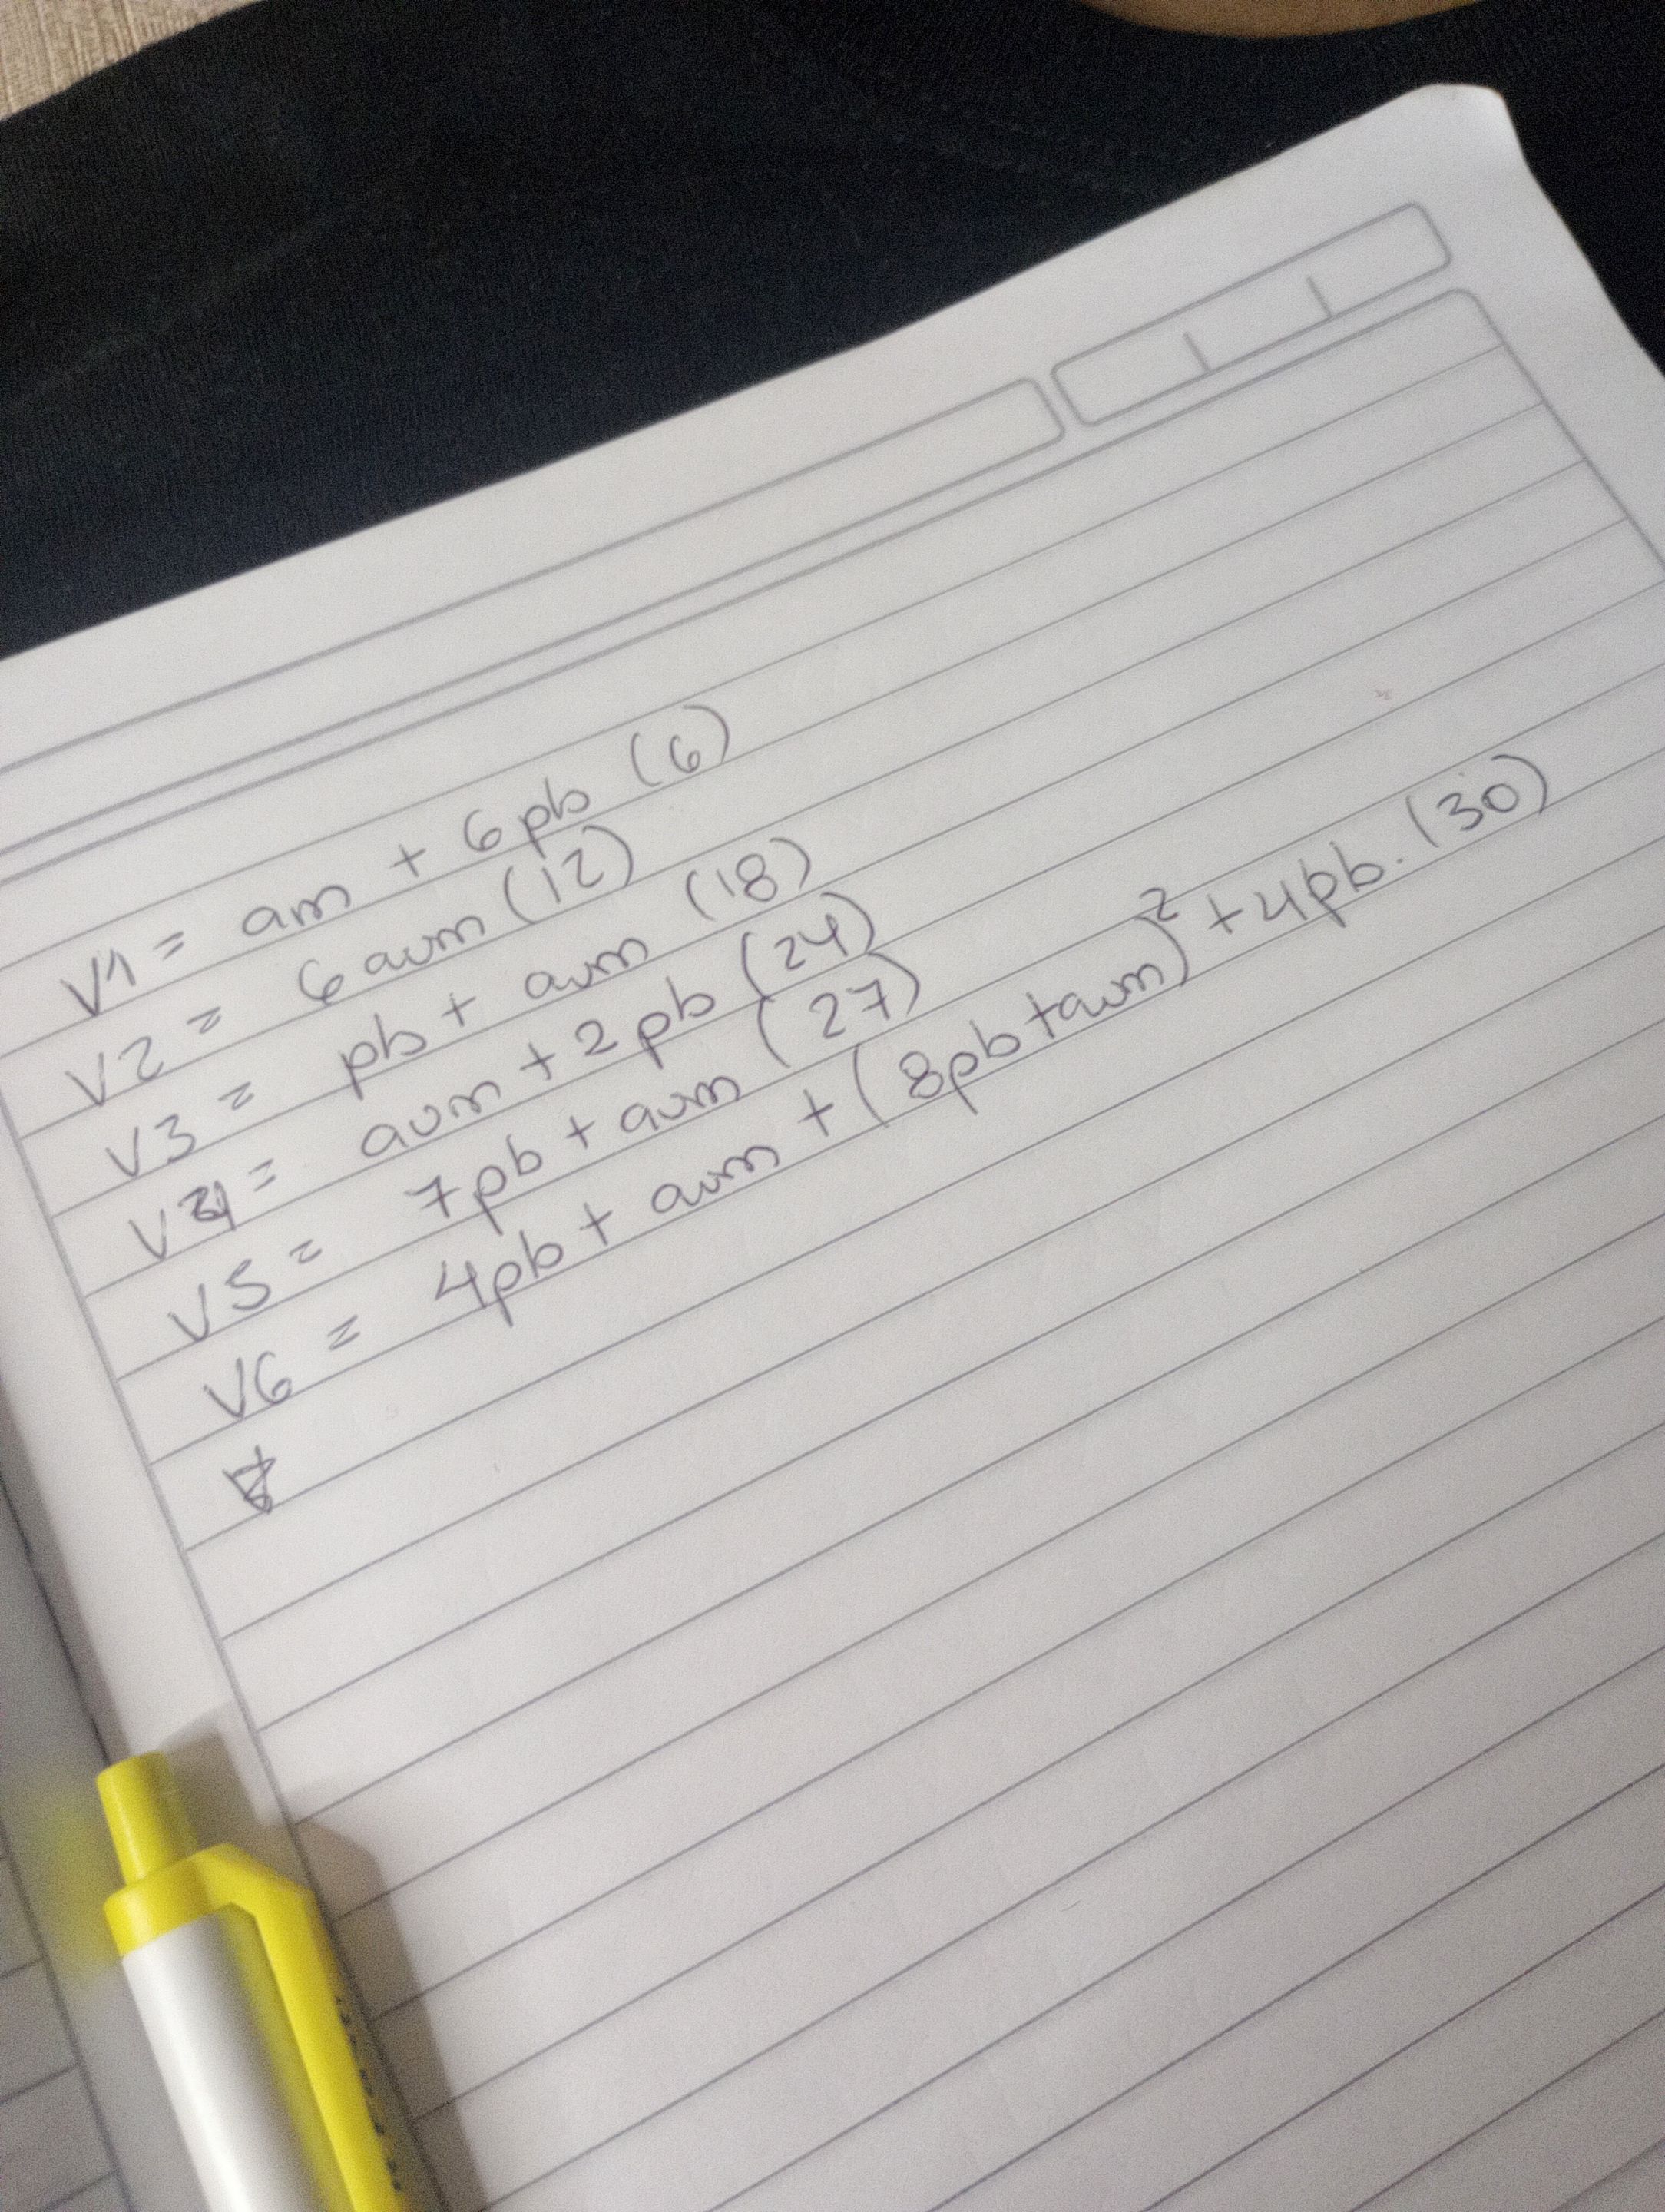 V1 = am + 6pb (6)
V2 = 6 aum (12)
V3 = pb + aum (18)
V4 = aum + 2pb (24)
V5 = 7pb + aum (27)
V6 = 4pb + aum + (8pb + aum)² + 4pb. (30)